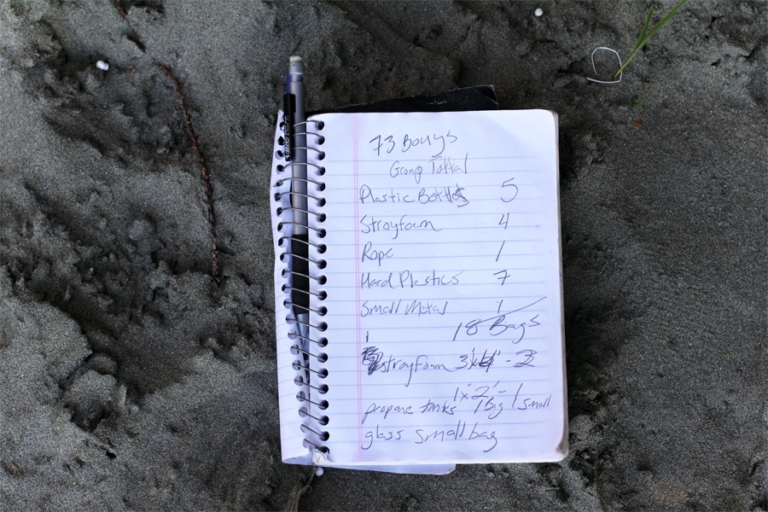 73 Bouys
Group Tottal
Plastic Bottles 5
Stroyfoam 4
Rope 1
Hard Plastics 7
Small Metal 1
18 Bags
stroyfoam 3'x4' - 2
1'x2' - 1
propane tanks 1 Big / 1 small
glass small bag